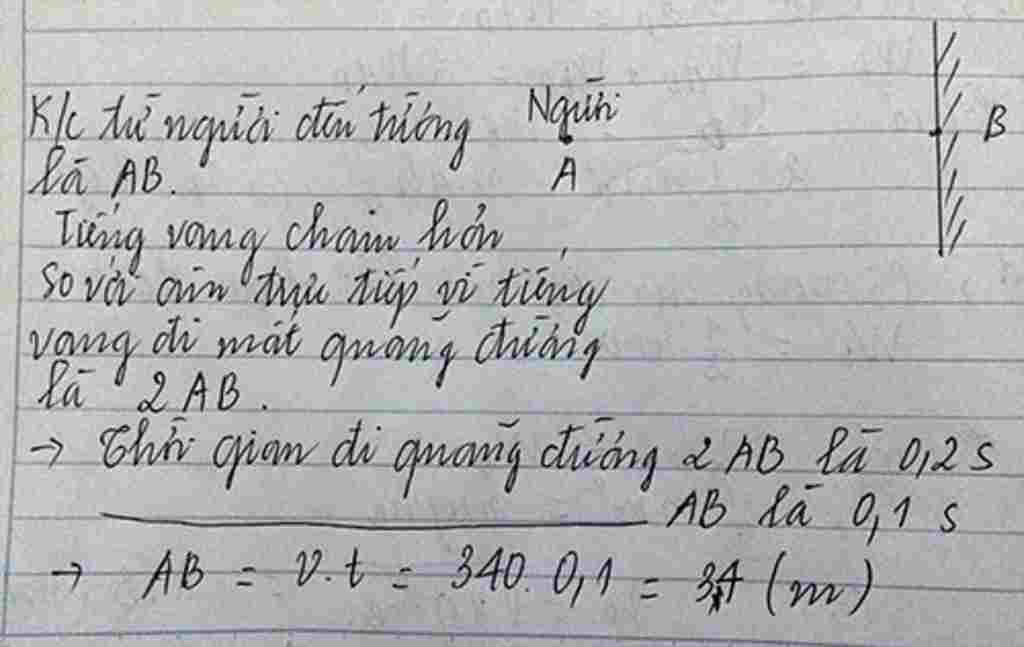 K/c từ người đến tường
là AB.
Người
A
B
Tiếng vang chậm hơn
so với âm trực tiếp vì tiếng
vang đi mất quãng đường
là 2AB.
→ Thời gian đi quãng đường 2AB là 0,2 s
AB là 0,1 s
→ AB = v.t = 340. 0,1 = 34 (m)